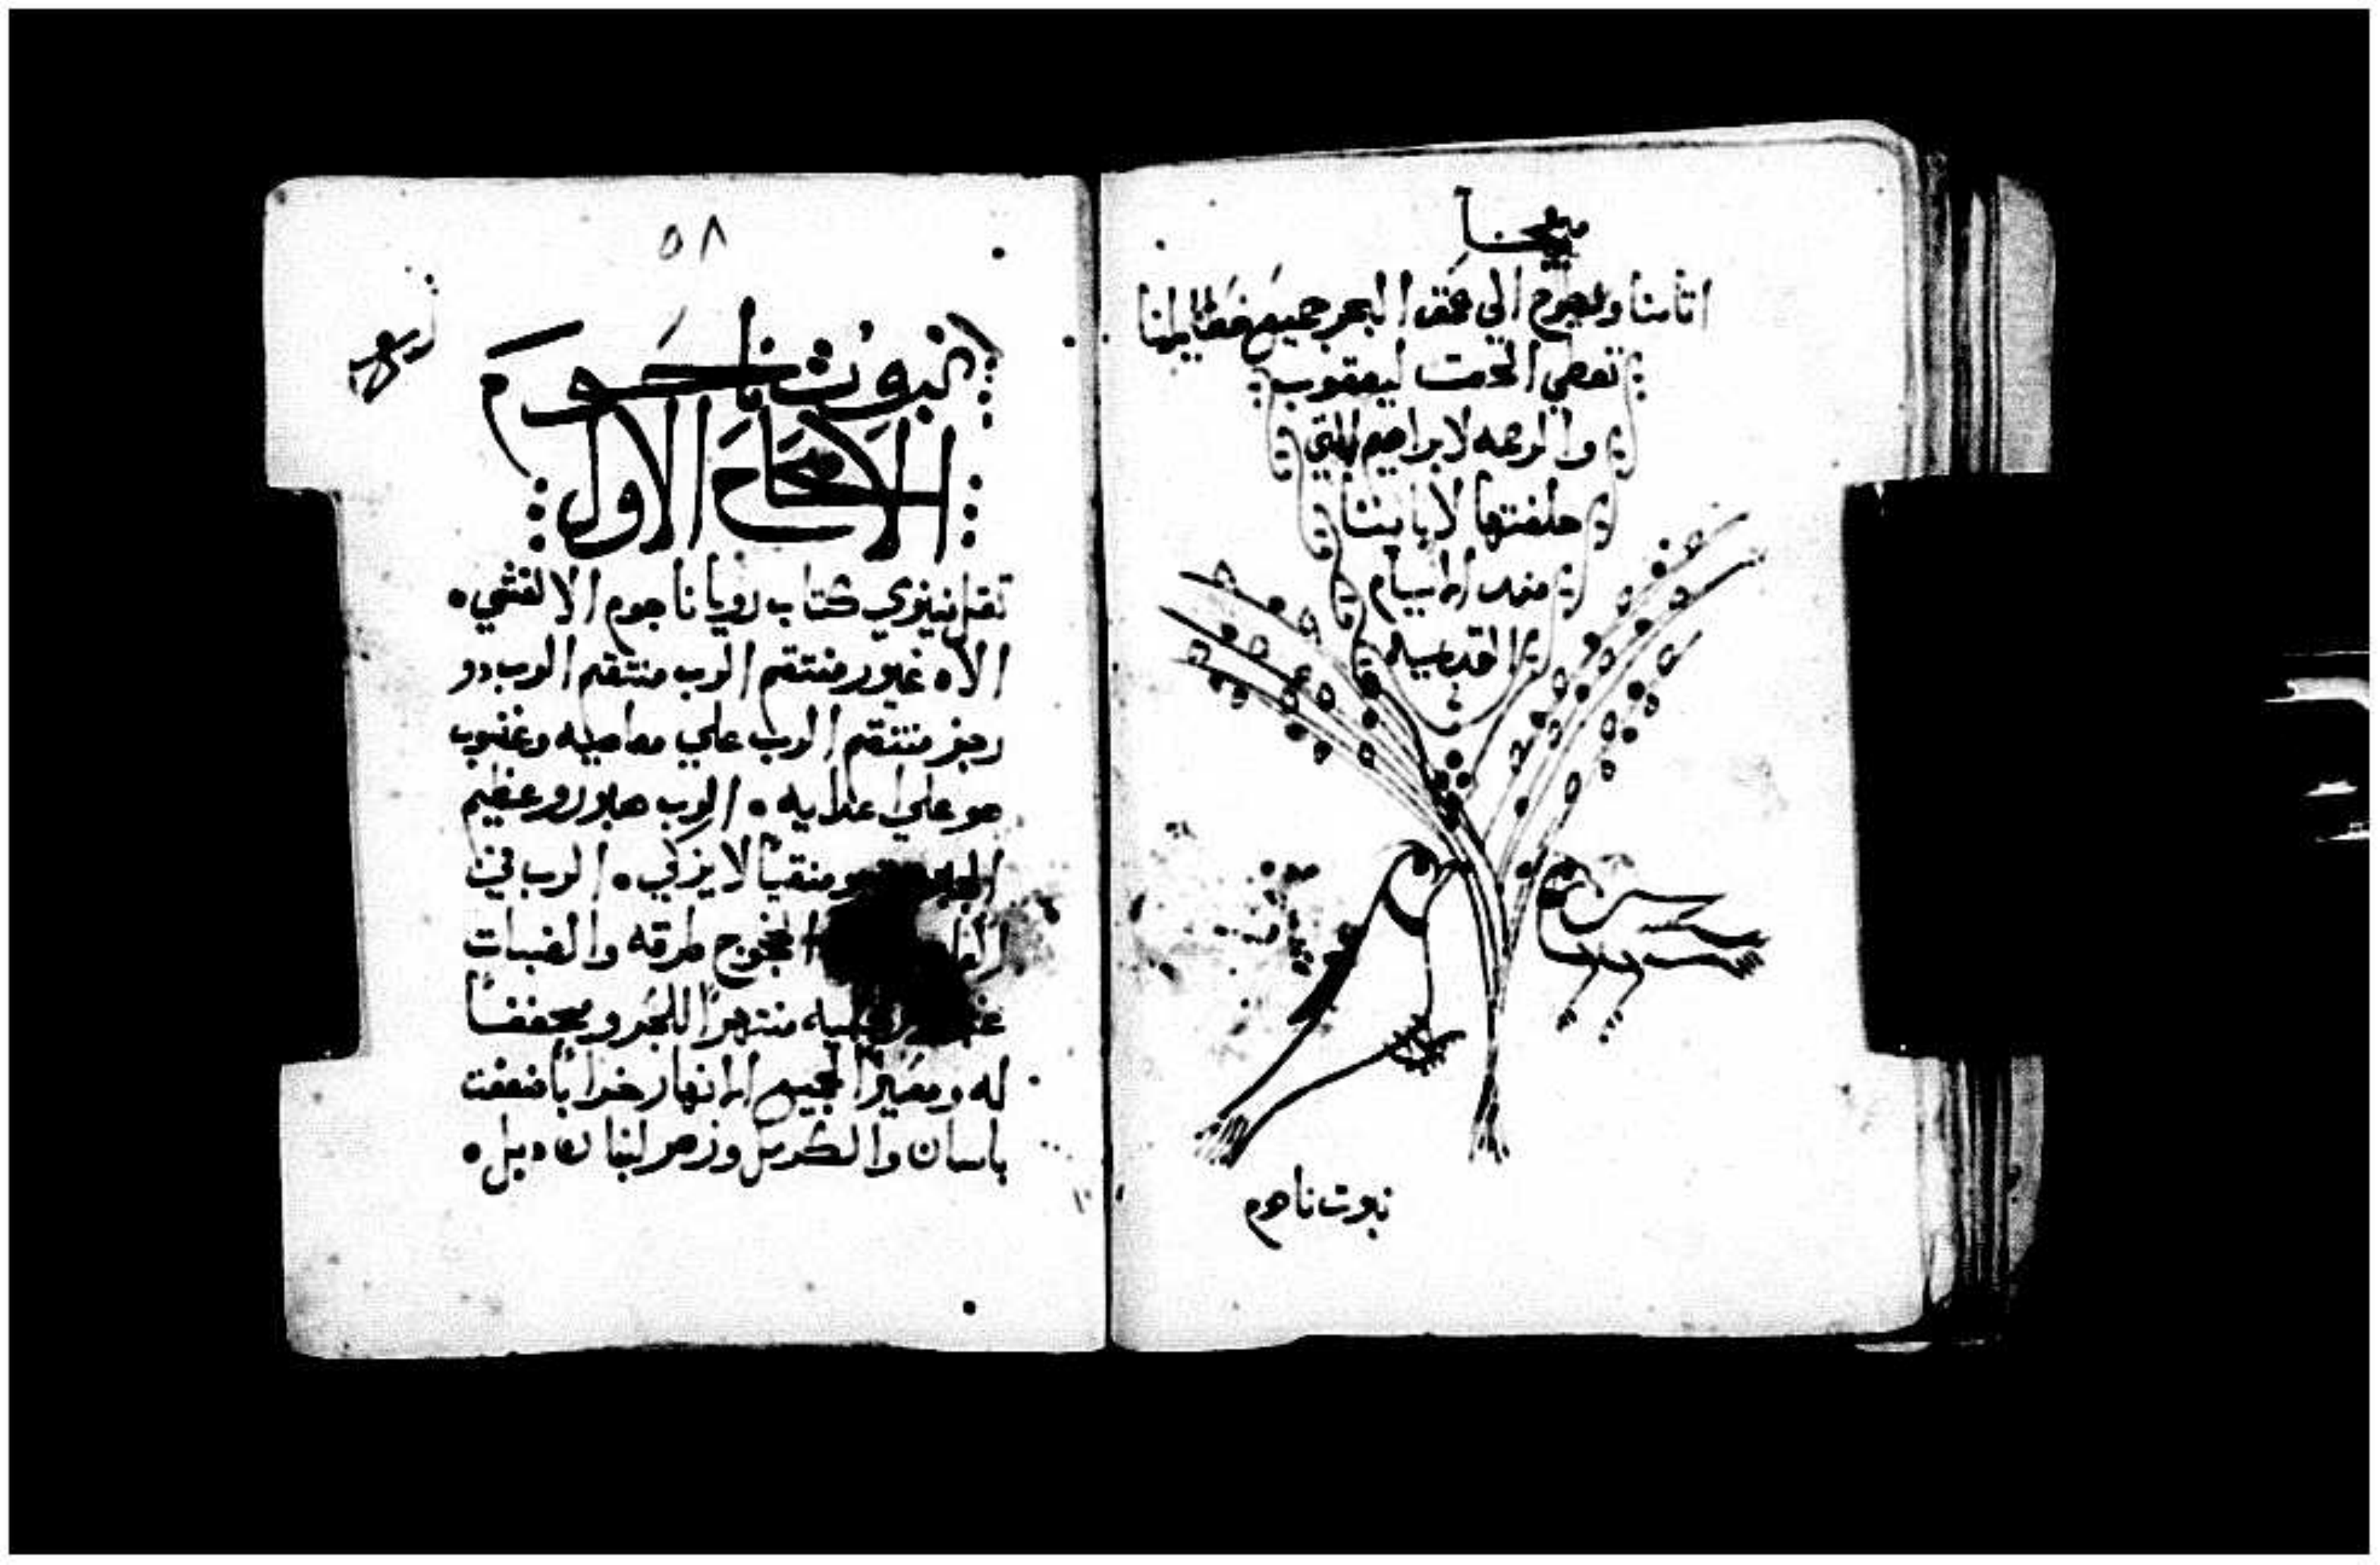 ميخا
اتامنا ويطرح الي عمق البحر جميع خطايانا
تعطي الحق ليعقوب
والرحمه لابراهيم التي
حلفتها لاباينا
منذ الايام
القديمه
نبوت ناحوم
٥٨
نبوت ناحوم
الاصحاح الاول
ثقل نينوي كتاب رويا ناحوم الالقشي.
الاه غيور منتقم الرب منتقم الرب دو
رجز منتقم الرب علي معاصيه وغضوب
هو علي اعدايه. الرب صبور وعظيم
منقيا لا يزكي. الرب في
طرقه والضبات
منتهرا للبحر ومجففا
له ومصيرا لجميع الانهار خرابا ضعفت
باسان والكرمل وزهر لبنان دبل.